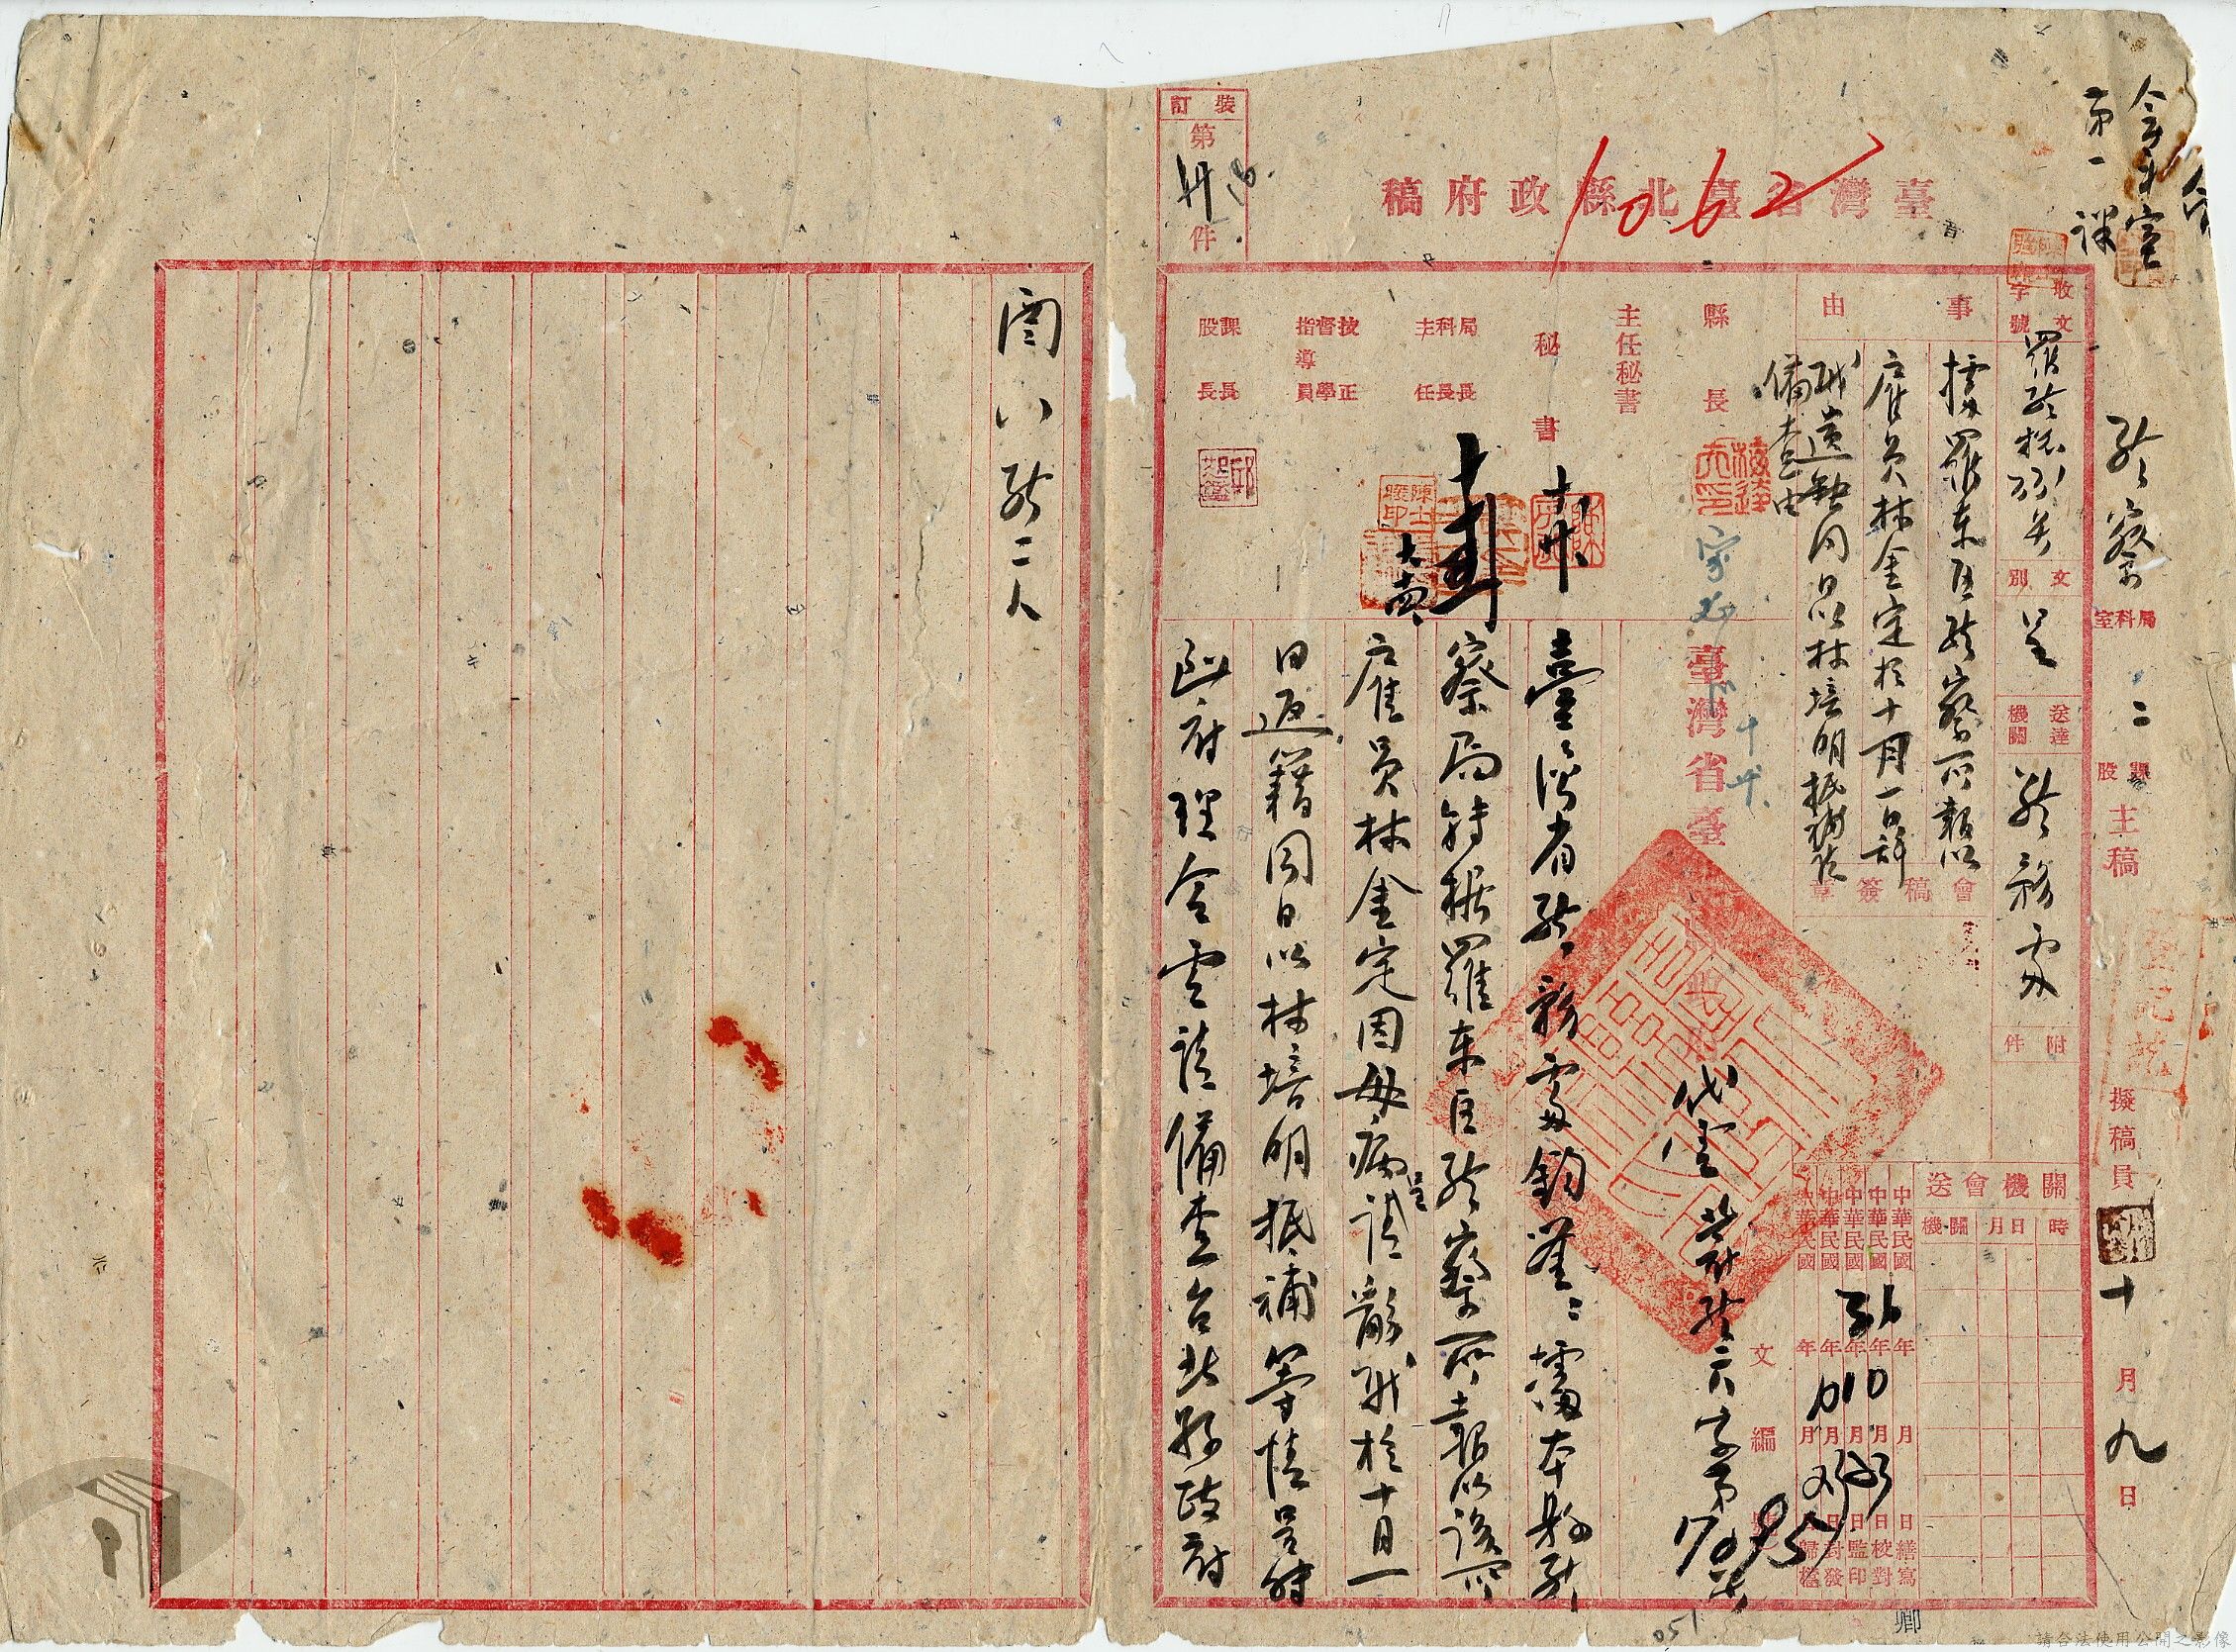 臺灣省臺北縣政府稿
1062
裝訂
第
件
會計室
第一課
警察
局科室
二
課股
主稿
擬稿員
十月九日
收文
字號
文別
呈
送達機關
警務處
附件
事由
據羅東區警察所報以
雇員林金定於十月一日辭
職遺缺同日以林培明抵補請
備查由
會稿簽章
關機會送
時
月日
機關
中華民國 年 月 日繕寫
中華民國 年 月 日校對
中華民國 年 月 日監印
中華民國 年 月 日封發
中華民國 年 月 日歸檔
文
編
縣長
主任秘書
秘書
局科主
長長任
技督指導
正學員
課股
長長
臺灣省臺
代電
字第7095號
臺灣省警務處鈞鑒:據本縣警
察局轉據羅東區警察所報以該所
雇員林金定因母病請辭職於十月一
日返籍同日以林培明抵補等情呈
府理合電請備查台北縣政府
二人
051
卿
請合法使用公開之影像